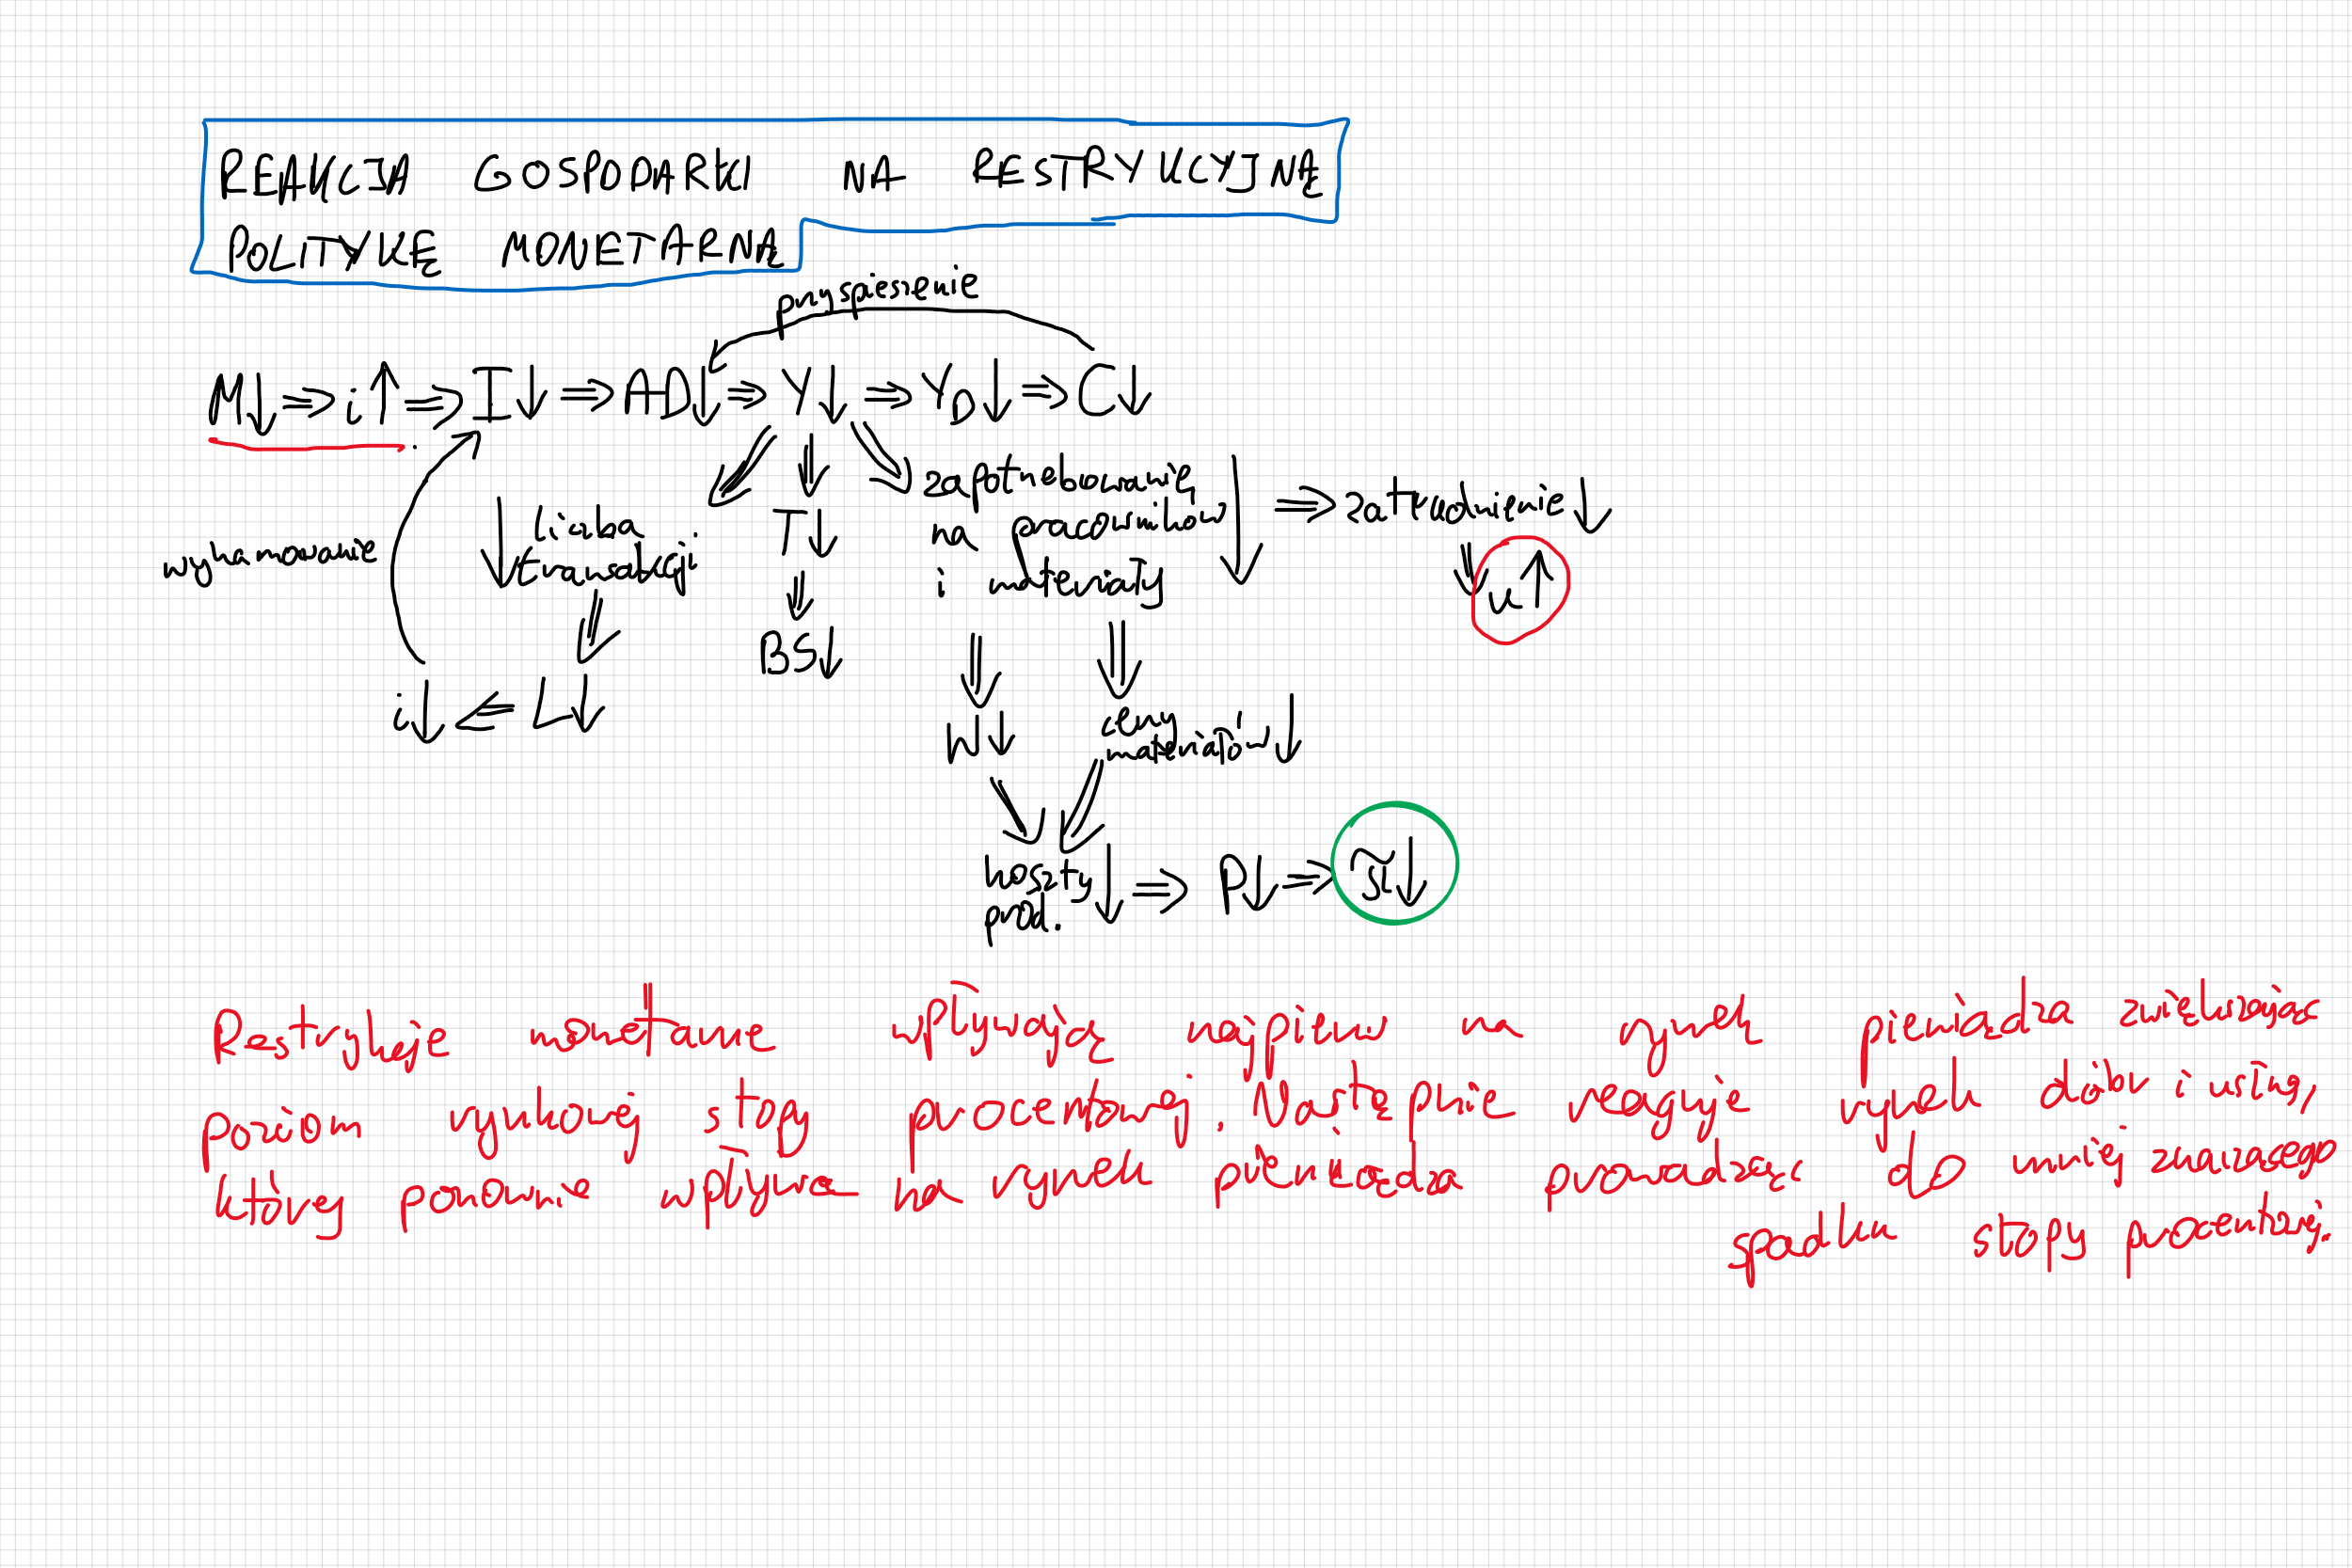 REAKCJA GOSPODARKI NA RESTRYKCYJNĄ
POLITYKĘ MONETARNĄ
przyspieszenie
M↓ ⇒ i↑ ⇒ I↓ ⇒ AD↓ ⇒ Y↓ ⇒ Y_D↓ ⇒ C↓
wyhamowanie
↓ liczba
transakcji
T↓
zapotrzebowanie
na pracowników
i materiały ↓ ⇒ zatrudnienie ↓
u↑
BS↓
i↓ ⇐ L↓
W↓
ceny
materiałów ↓
koszty
prod. ↓ ⇒ P↓ ⇒ π↓
Restrykcje monetarne wpływają najpierw na rynek pieniądza zwiększając
poziom rynkowej stopy procentowej. Następnie reaguje rynek dóbr i usług,
który ponownie wpływa na rynek pieniądza prowadząc do mniej znaczącego
spadku stopy procentowej.